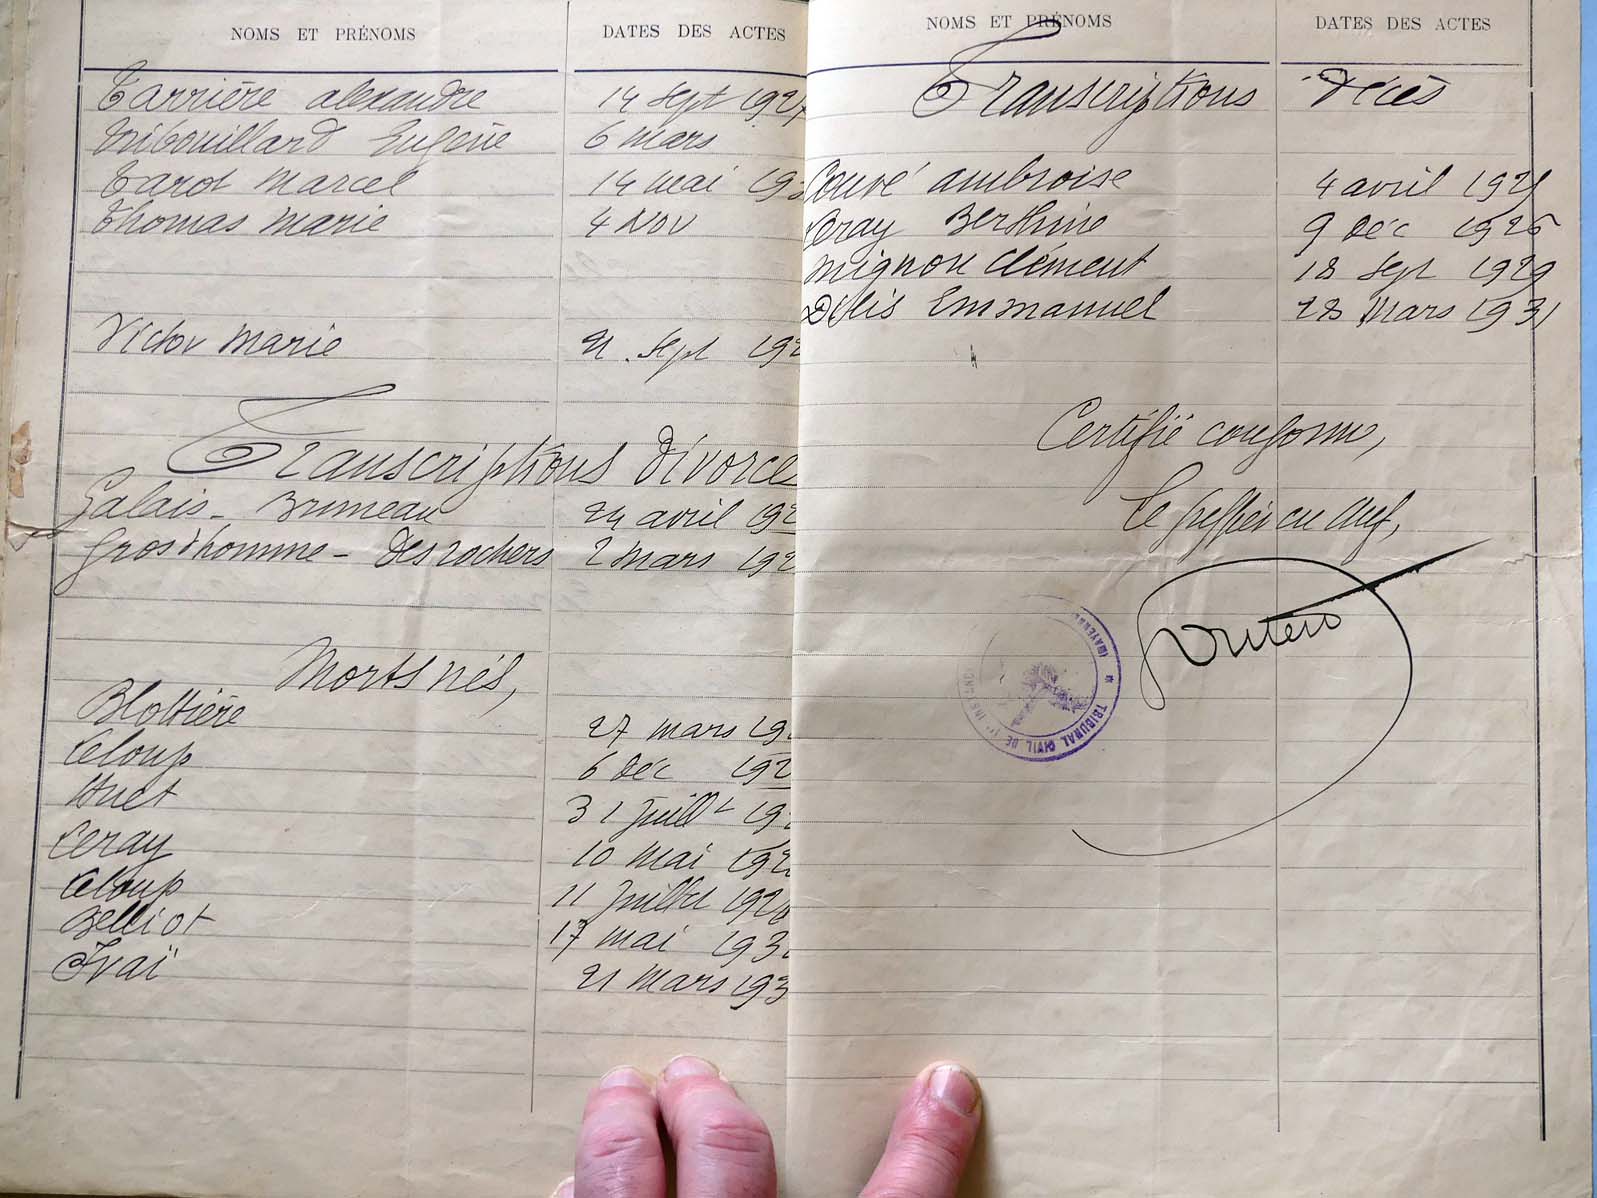 NOMS ET PRÉNOMS DATES DES ACTES
Tarrière alexandre 14 Sept 192
Tribouillard Eugène 6 mars
Tarot Marcel 14 mai 193
Thomas Marie 4 Nov
Victor Marie 21. Sept 192
Transcriptions Divorces
Galais - Bruneau 24 avril 192
Gros d'homme - Desrochers 2 mars 192
Morts nés,
Blottière 27 mars 19
Leloup 6 Déc 192
Huet 31 Juillt 19
Leray 10 mai 192
Leloup 11 Juillet 192
Belliot 17 mai 193
21 mars 193
NOMS ET PRÉNOMS DATES DES ACTES
Transcriptions Décès
Couvé ambroise 4 avril 192
Leray Berthine 9 Déc 1926
Mignon Clément 18 Sept 1929
Emmanuel 28 Mars 1931
Certifié conforme,
Le Greffier en chef,
TRIBUNAL CIVIL DE 1re INSTANCE * (MAYENNE)